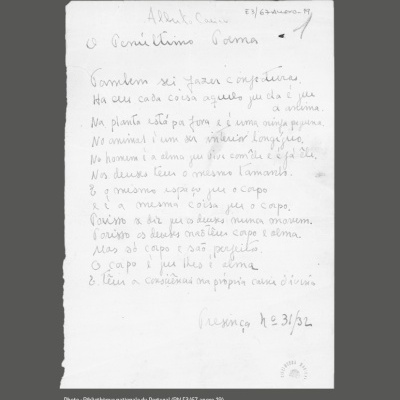 Alberto Caeiro
E3/67
1
O Penúltimo Poema
Tambem sei fazer conjecturas.
Ha em cada coisa aquilo que ella é que
a anima.
Na planta está por fora e é uma nympha pequena.
No animal é um ser interior longinquo.
No homem é a alma que vive com elle e é já elle.
Nos deuses tem o mesmo tamanho
E o mesmo espaço que o corpo
E é a mesma coisa que o corpo.
Porisso se diz que os deuses nunca morrem.
Porisso os deuses não têm corpo e alma
Mas só corpo e são perfeitos.
O corpo é que lhes é alma
E têm a consciencia na propria carne divina
Presença Nº 31/32